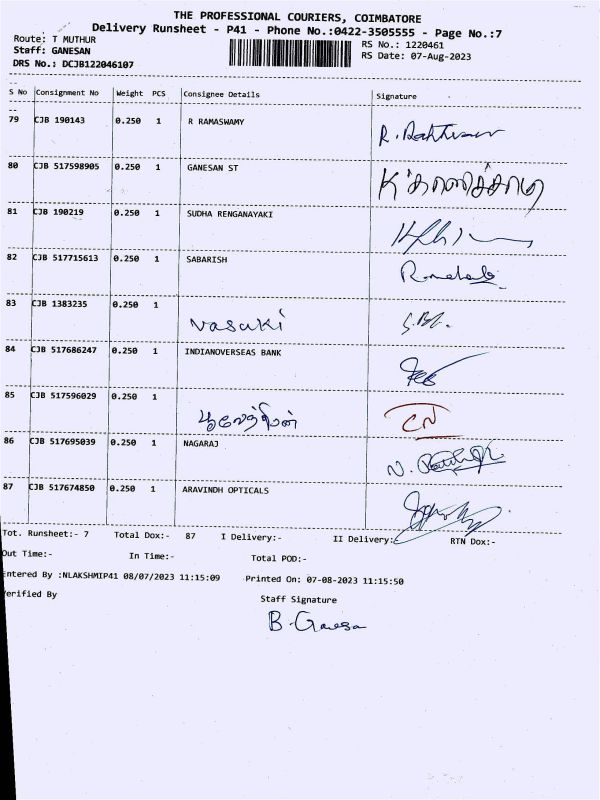 THE PROFESSIONAL COURIERS, COIMBATORE
Delivery Runsheet - P41 - Phone No.:0422-3505555 - Page No.:7
Route: T MUTHUR
RS No.: 1220461
Staff: GANESAN
RS Date: 07-Aug-2023
DRS No.: DCJB122046107
S No Consignment No Weight PCS Consignee Details Signature
79 CJB 190143 0.250 1 R RAMASWAMY
80 CJB 517598905 0.250 1 GANESAN ST
81 CJB 190219 0.250 1 SUDHA RENGANAYAKI
82 CJB 517715613 0.250 1 SABARISH
83 CJB 1383235 0.250 1
Vasuki
84 CJB 517686247 0.250 1 INDIANOVERSEAS BANK
85 CJB 517596029 0.250 1
CN
86 CJB 517695039 0.250 1 NAGARAJ
87 CJB 517674850 0.250 1 ARAVINDH OPTICALS
Tot. Runsheet:- 7 Total Dox:- 87 I Delivery:- II Delivery:- RTN Dox:-
Out Time:- In Time:- Total POD:-
Entered By :NLAKSHMIP41 08/07/2023 11:15:09 Printed On: 07-08-2023 11:15:50
Verified By Staff Signature